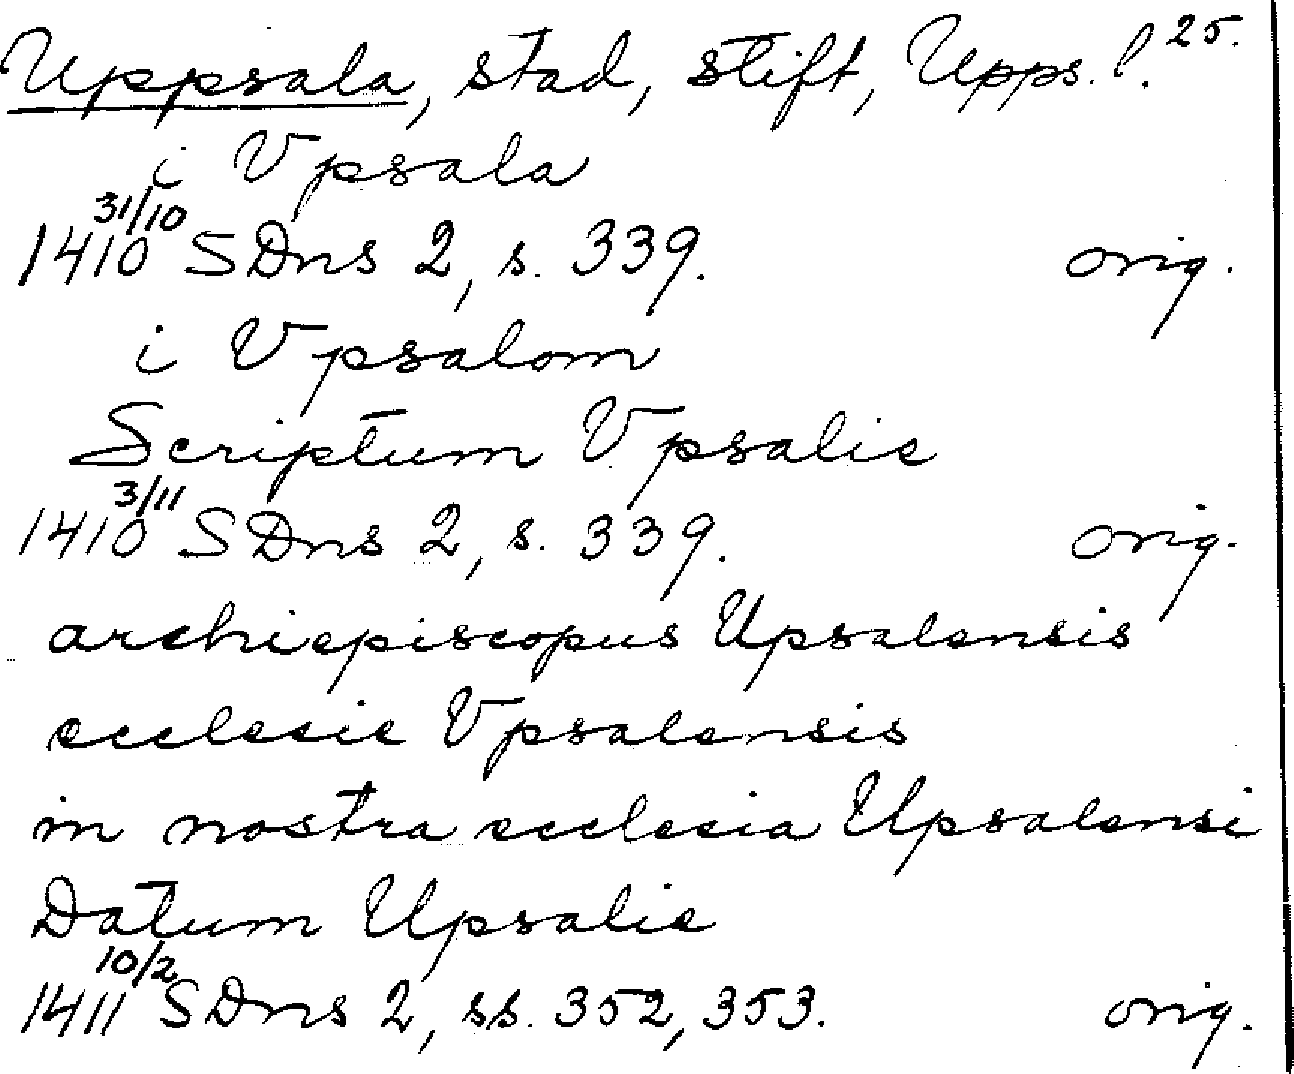 Uppsala, stad, stift, Upps. l. 25.
i Vpsala
1410 31/10 SDns 2, s. 339. orig.
i Vpsalom
Scriptum Vpsalie
1410 3/11 SDns 2, s. 339. orig.
archiepiscopus Upsalensis
ecclesie Vpsalensis
in nostra ecclesia Upsalensi
Datum Upsalie
1411 10/2 SDns 2, ss. 352, 353. orig.